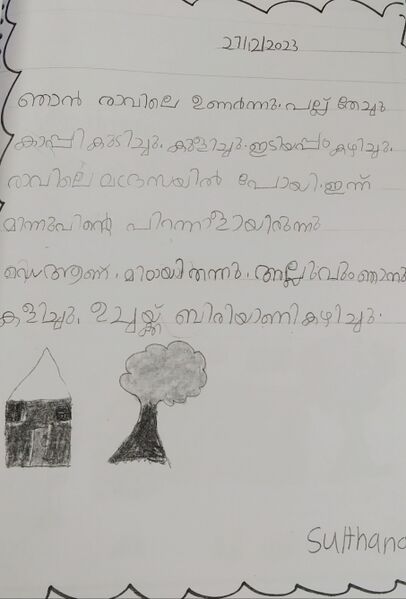 27/12/2023
ഞാൻ രാവിലെ ഉണർന്നു. പല്ല് തേച്ചു
കാപ്പി കുടിച്ചു. കുളിച്ചു. ഇടിയപ്പം കഴിച്ചു.
രാവിലെ മദ്രസയിൽ പോയി. ഇന്ന്
മിന്നുവിന്റെ പിറന്നാളായിരുന്നു
മിഠായി തന്നു. അല്ലുവും ഞാനു
കളിച്ചു. ഉച്ചയ്ക്ക് ബിരിയാണി കഴിച്ചു.
Sulthana